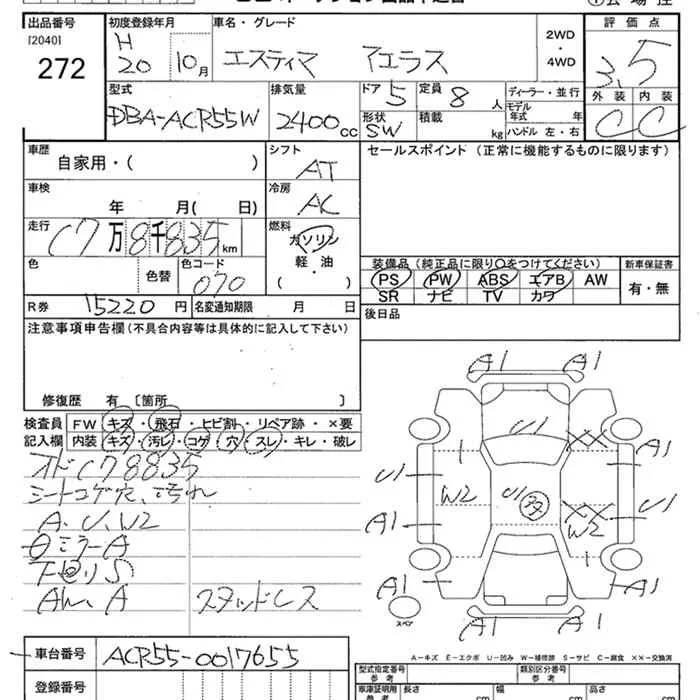 出品番号
[2040]
272
初度登録年月
H
20 10月
車名・グレード
エスティマ アエラス
2WD
・
4WD
評価点
3.5
外装 内装
C C
型式
DBA-ACR55W
排気量
2400cc
ドア 5
定員 8人
形状
SW
積載 kg
ディーラー・並行
モデル
年式 年
ハンドル 左・右
車歴
自家用・( )
シフト
AT
セールスポイント(正常に機能するものに限ります)
車検
年 月( 日)
冷房
AC
走行
C7万8千835km
燃料
ガソリン
軽・油
( )
色
色替
色コード
070
装備品(純正品に限り○をつけてください)
PS PW ABS エアB AW
SR ナビ TV カワ
新車保証書
有・無
R券 15220円
名変通知期限 月 日
後日品
注意事項申告欄(不具合内容等は具体的に記入して下さい)
修復歴 有 [箇所 ]
検査員
記入欄
FW キズ・飛石・ヒビ割・リペア跡・×要
内装 キズ・汚レ・コゲ・穴・スレ・キレ・破レ
オドC78835
シートコゲ穴、汚れ
A、U、W2
ミラーA
下回りS
AW、A スタッドレス
A1 A1
U1
A1
U1
W2
U1
U1
A1
W2
A1
A1
A1 A1
スペア
A−キズ E−エクボ U−凹み W−補修跡 S−サビ C−腐食 ××−交換済
車台番号 ACR55-0017655
登録番号
型式指定番号
参考
類別区分番号
参考
車庫証明用
長さ cm
幅 cm
高さ cm